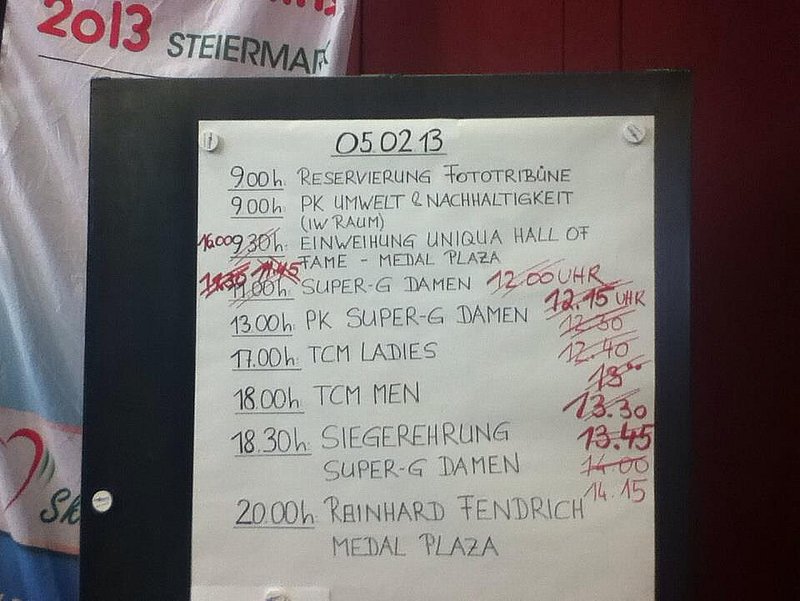 2013 STEIERMARK
05.02.13
9.00h: RESERVIERUNG FOTOTRIBÜNE
9.00h: PK UMWELT & NACHHALTIGKEIT
(IW RAUM)
16.00 9.30h: EINWEIHUNG UNIQUA HALL OF
FAME - MEDAL PLAZA
11.30 11.45
11.00h: SUPER-G DAMEN 12.00 UHR
12.15 UHR
13.00h: PK SUPER-G DAMEN 12.30
17.00h: TCM LADIES 12.40
13°°
18.00h: TCM MEN 13.30
18.30h: SIEGEREHRUNG 13.45
SUPER-G DAMEN 14.00
14.15
20.00h: RAINHARD FENDRICH
MEDAL PLAZA
Sk